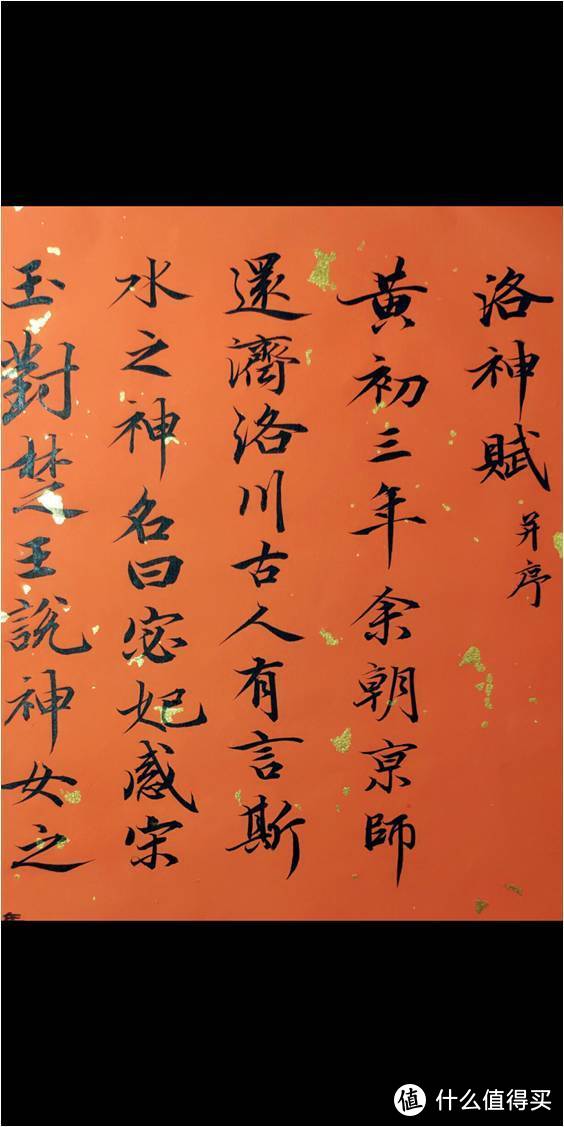 洛神賦并序
黃初三年余朝京師
還濟洛川古人有言斯
水之神名曰宓妃感宋
玉對楚王說神女之
值 什么值得买